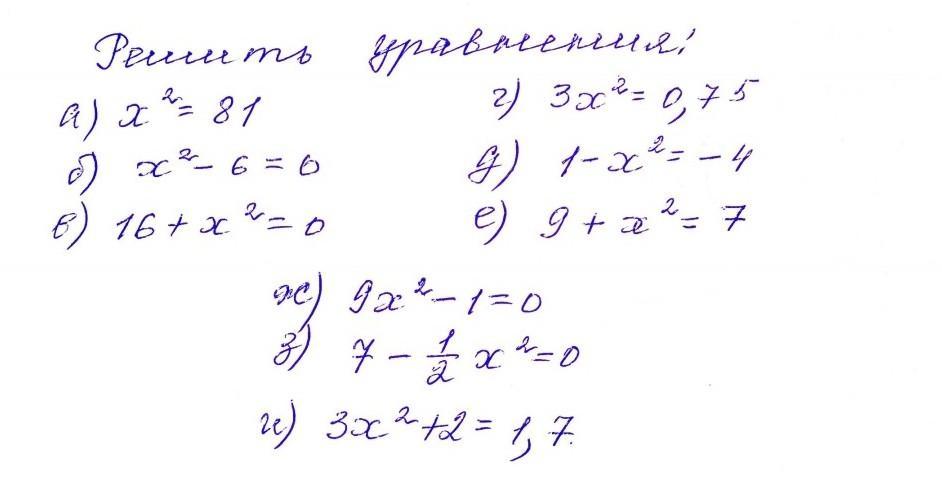 Решить уравнения:
а) x² = 81
б) x² - 6 = 0
в) 16 + x² = 0
г) 3x² = 0,75
д) 1 - x² = -4
е) 9 + x² = 7
ж) 9x² - 1 = 0
з) 7 - 1/2 x² = 0
и) 3x² + 2 = 1,7.